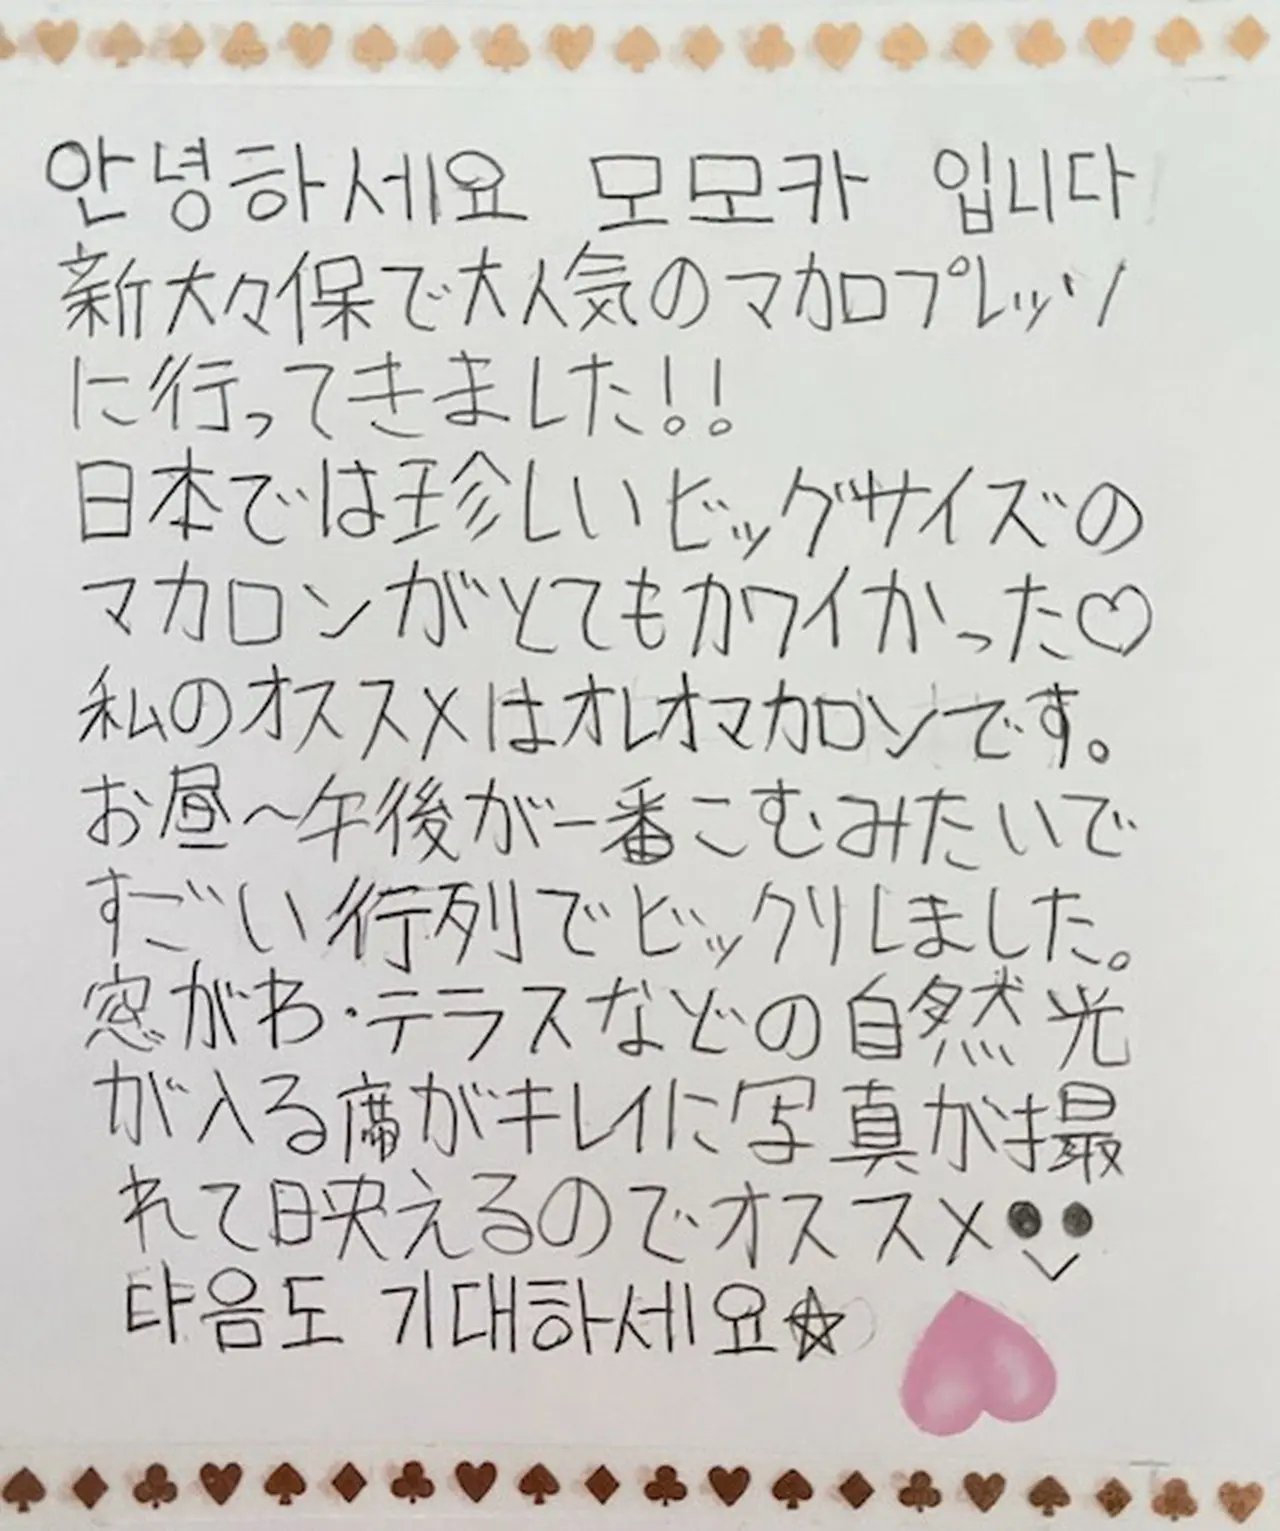 안녕하세요 모모카 입니다
新大々保で大人気のマカロプレッソ
に行ってきました!!
日本では珍しいビッグサイズの
マカロンがとてもカワイかった♡
私のオススメはオレオマカロンです。
お昼〜午後が一番こむみたいで
すごい行列でビックリしました。
窓がわ・テラスなどの自然光
が入る席がキレイに写真が撮
れて映えるのでオススメ
댜음도 기대하세요☆